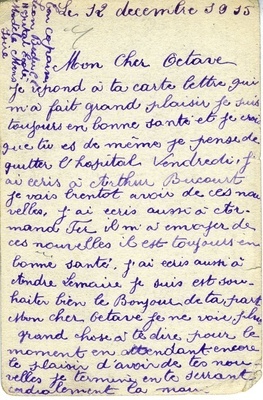 Le 12 decembre 1915
Mon Cher Octave
je répond à ta carte lettre qui
m'a fait grand plaisir je suis
toujours en bonne santé et je croi
que tu es de même je pense de
quitter l'hospital Vendredi, j'
ai ecris à Arthur Bucourt
je vais bientot avoir de ces nou
velles, j'ai ecris aussi à Ar-
mand il m'a envoyer de
ces nouvelles il est toujours en
bonne santé, j'ai ecris aussi à
Andre Lemaire je suis est sou-
haiter bien le Bonjour de ta part
Mon cher Octave je ne voie plus
grand chose à te dire pour le
moment en attendant encore
le plaisir d'avoir de tes nou-
velles je termine en te serrant
cordialement la main
Ton copain
Léon
Hopital